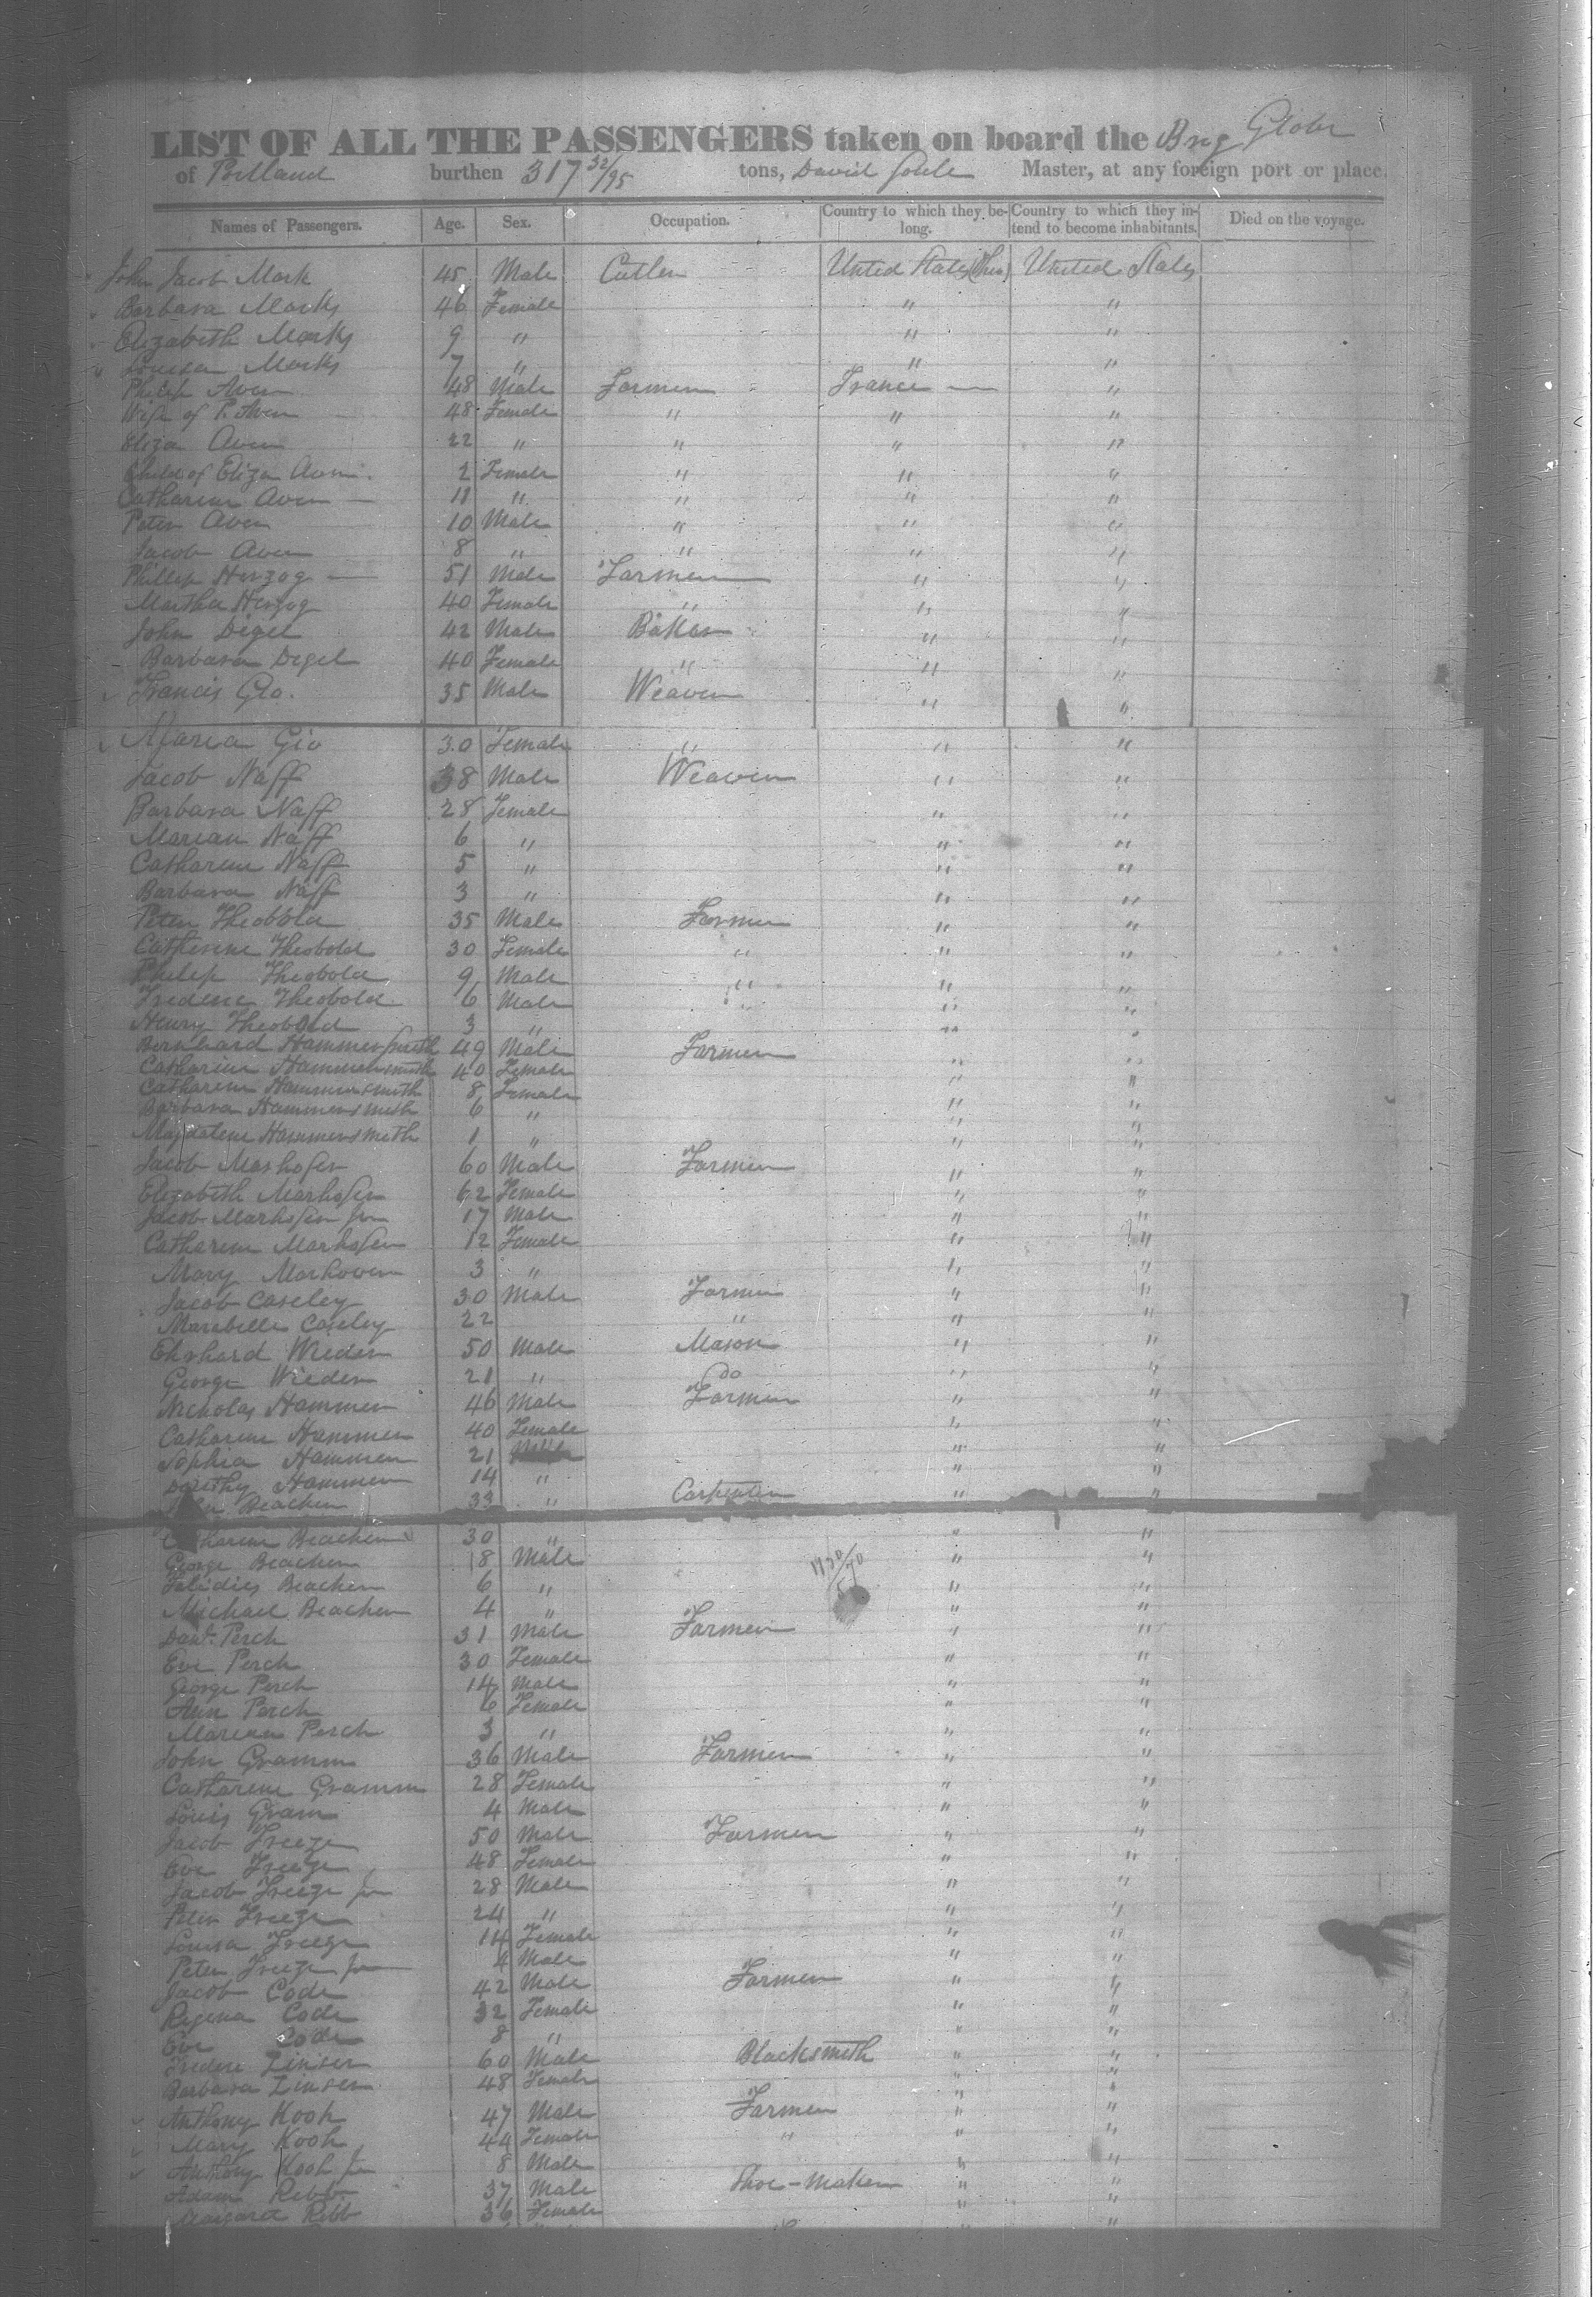 LIST OF ALL THE PASSENGERS taken on board the Brig Globe
of Portland burthen 317 32/95 tons, David Master, at any foreign port or place.
Names of Passengers. Age. Sex. Occupation. Country to which they be-long. Country to which they in-tend to become inhabitants. Died on the voyage.
John Jacob Mark 45 Male Cutler United States United States
Barbara Marks 46 Female " "
Elizabeth Marks 9 " " "
Louisa Marks 7 " " "
Philip Aven 48 Male Farmer France "
Wife of P. Aven 48 Female " " "
Eliza Aven 22 " " " "
Child of Eliza Aven 2 Female " " "
Catharine Aven 11 " " " "
Peter Aven 10 Male " " "
Jacob Aven 8 " " " "
Phillip Herzog 51 Male Farmer " "
Martha Herzog 40 Female " " "
John Digel 42 Male Baker " "
Barbara Digel 40 Female " " "
Francis Gio. 35 Male Weaver " "
Maria Gio 30 Female " " "
Jacob Naff 38 Male Weaver " "
Barbara Naff 28 Female " "
Marian Naff 6 " " "
Catharine Naff 5 " " "
Barbara Naff 3 " " "
Peter Theobold 35 Male Farmer " "
Catherine Theobold 30 Female " " "
Philip Theobold 9 Male " " "
Frederic Theobold 6 Male " " "
Henry Theobold 3 " " "
Bernhard Hammersmith 49 Male Farmer " "
Catharine Hammersmith 40 Female " "
Catharine Hammersmith 8 Female " "
Barbara Hammersmith 6 " " "
Magdalene Hammersmith 1 " " "
Jacob Marhofer 60 Male Farmer " "
Elizabeth Marhofer 62 Female " "
Jacob Marhofer Jun 17 Male " "
Catharine Marhofer 12 Female " "
Mary Marhover 3 " " "
Jacob Caseley 30 Male Farmer " "
Marabelle Caseley 22 " " "
Ehrhard Wieder 50 Male Mason " "
George Wieder 21 " Do " "
Nicholas Hammer 46 Male Farmer " "
Catharine Hammer 40 Female " "
Sophia Hammer 21 " "
Dorothy Hammer 14 " " "
Beacher 33 " Carpenter " "
Catharine Beacher 30 " " "
George Beacher 8 Male " "
Beacher 6 " " "
Michael Beacher 4 " " "
Danl. Perch 31 Male Farmer " "
Eve Perch 30 Female " "
George Perch 14 Male " "
Ann Perch 6 Female " "
Marian Perch 3 " " "
John Gramm 36 Male Farmer " "
Catharine Gramm 28 Female " "
Louis Gram 4 Male " "
Jacob Freeze 50 Male Farmer " "
Eve Freeze 48 Female " "
Jacob Freeze Jr 28 Male " "
Peter Freeze 24 " " "
Louisa Freeze 14 Female " "
Peter Freeze Jr 4 Male " "
Jacob Code 42 Male Farmer " "
Regena Code 32 Female " "
Eve Code 8 " " "
Frederic Zinser 60 Male Blacksmith " "
Barbara Zinser 48 Female " "
Anthony Kooh 47 Male Farmer " "
Mary Kooh 44 Female " " "
Anthony Kooh Jr 8 Male " "
Adam Rebb 37 Male Shoe-Maker " "
Margaret Rebb 36 Female " "